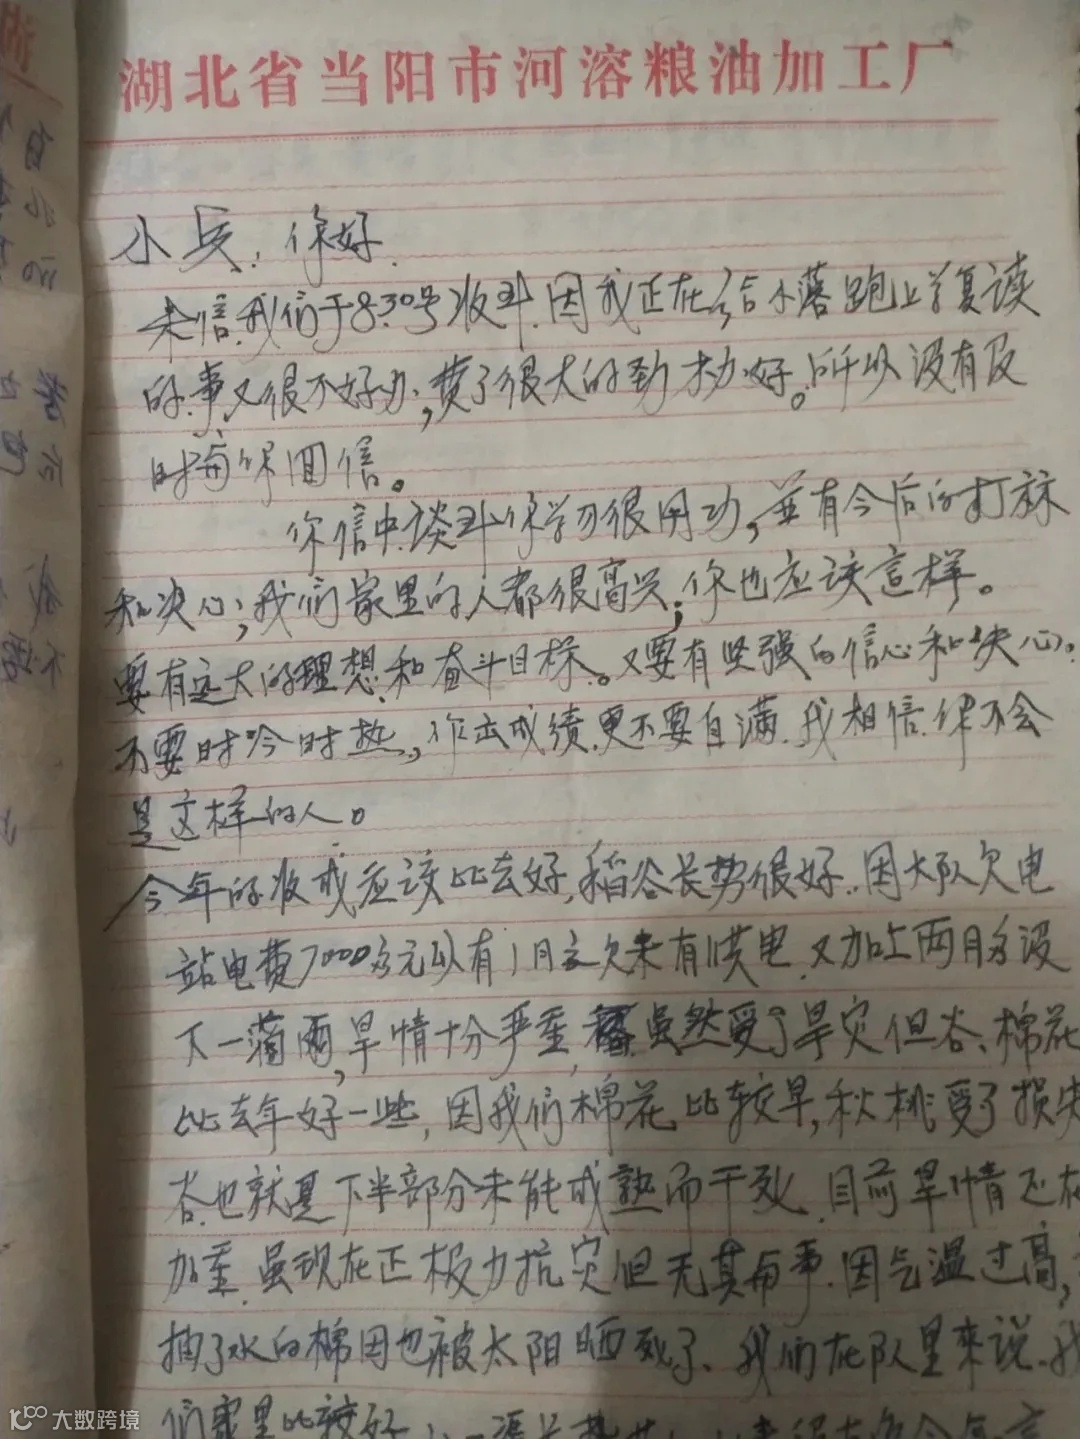 湖北省当阳市河溶粮油加工厂
小兵：你好.
来信.我们于8.30号收到.因我正在给小落跑上学复读
的.事又很不好办,费了很大的劲才办好。所以没有及
时向你回信。
你信中谈到你学习很用功,并有今后的打算
和决心;我们家里的人都很高兴.你也应该这样。
要有远大的理想和奋斗目标。又要有坚强的信心和决心.
不要时冷时热,作出成绩.更不要自满.我相信你不会
是这样的人。
今年的收成应该比去好,稻谷长势很好.因大队欠电
站电费7000多元以有1月之久未有供电.又加上两月多没
下一滴雨,旱情十分严重,虽然受了旱灾但谷、棉花
比去年好一些,因我们棉花比较早,秋桃受了损失
谷也就是下半部分未能成熟而干死.目前旱情还在
加重.虽现在正极力抗灾但无其而事.因气温过高,
抽了水的棉因也被太阳晒死了、我们在队里来说.我
们家里比较好
大数跨境